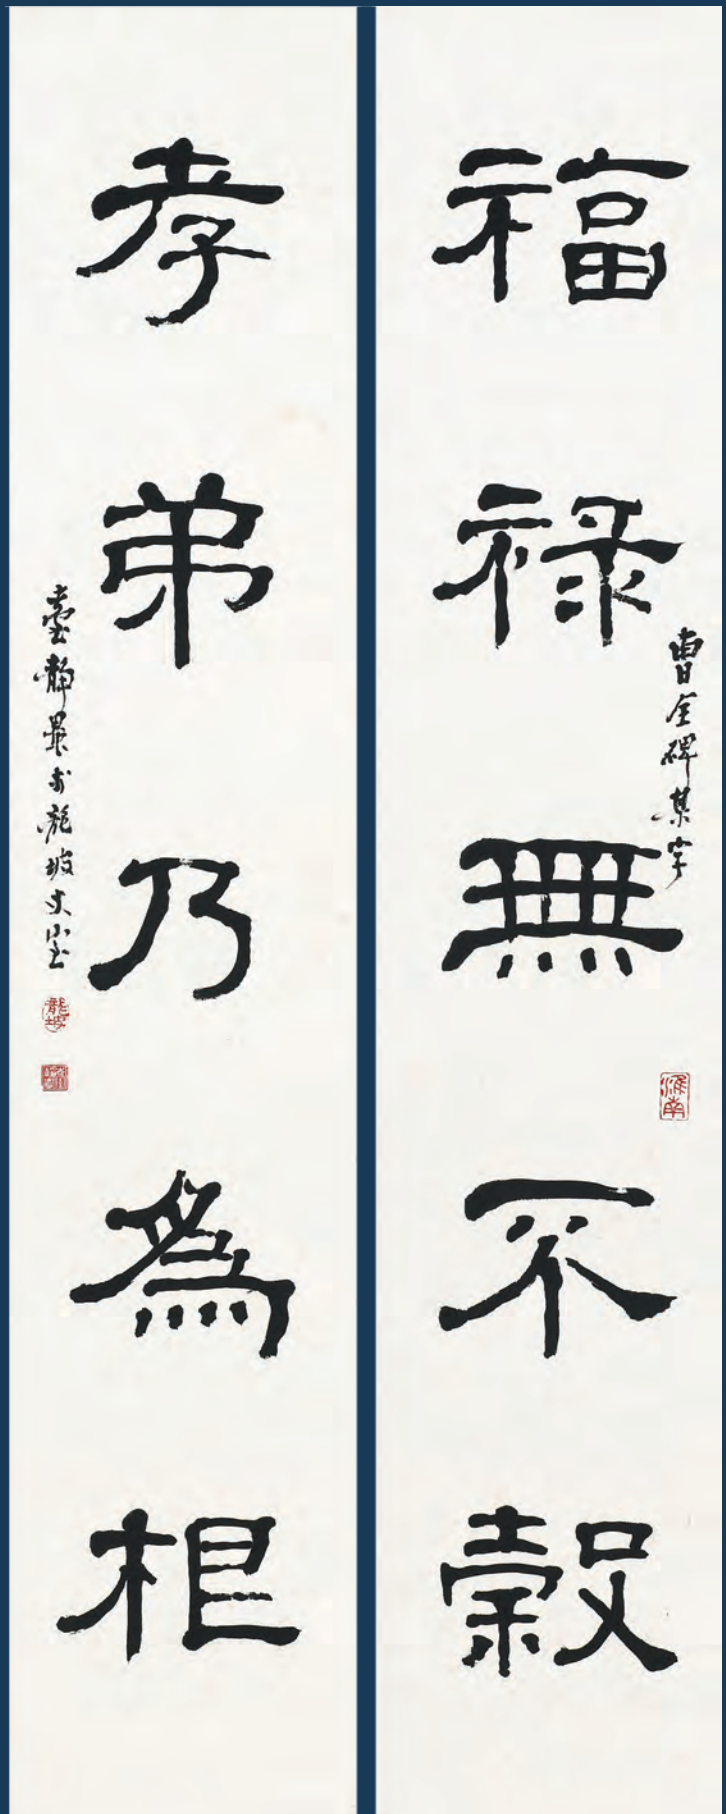 福祿無不穀
曹全碑集字
淮南
孝弟乃為根
臺靜農於龍坡丈室
龍坡